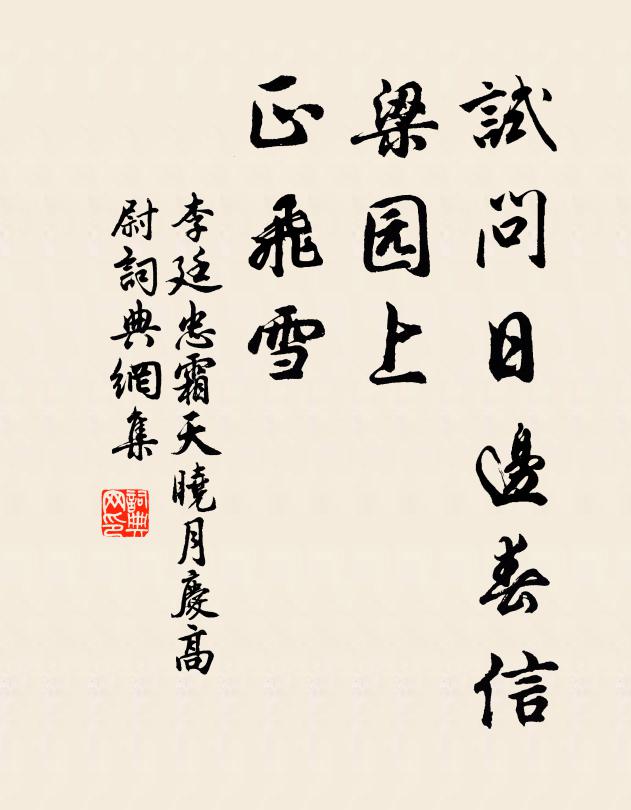 試問日邊春信
梁园上
正飛雪
李廷忠霜天曉月慶高
尉詞典網集
詞典網印